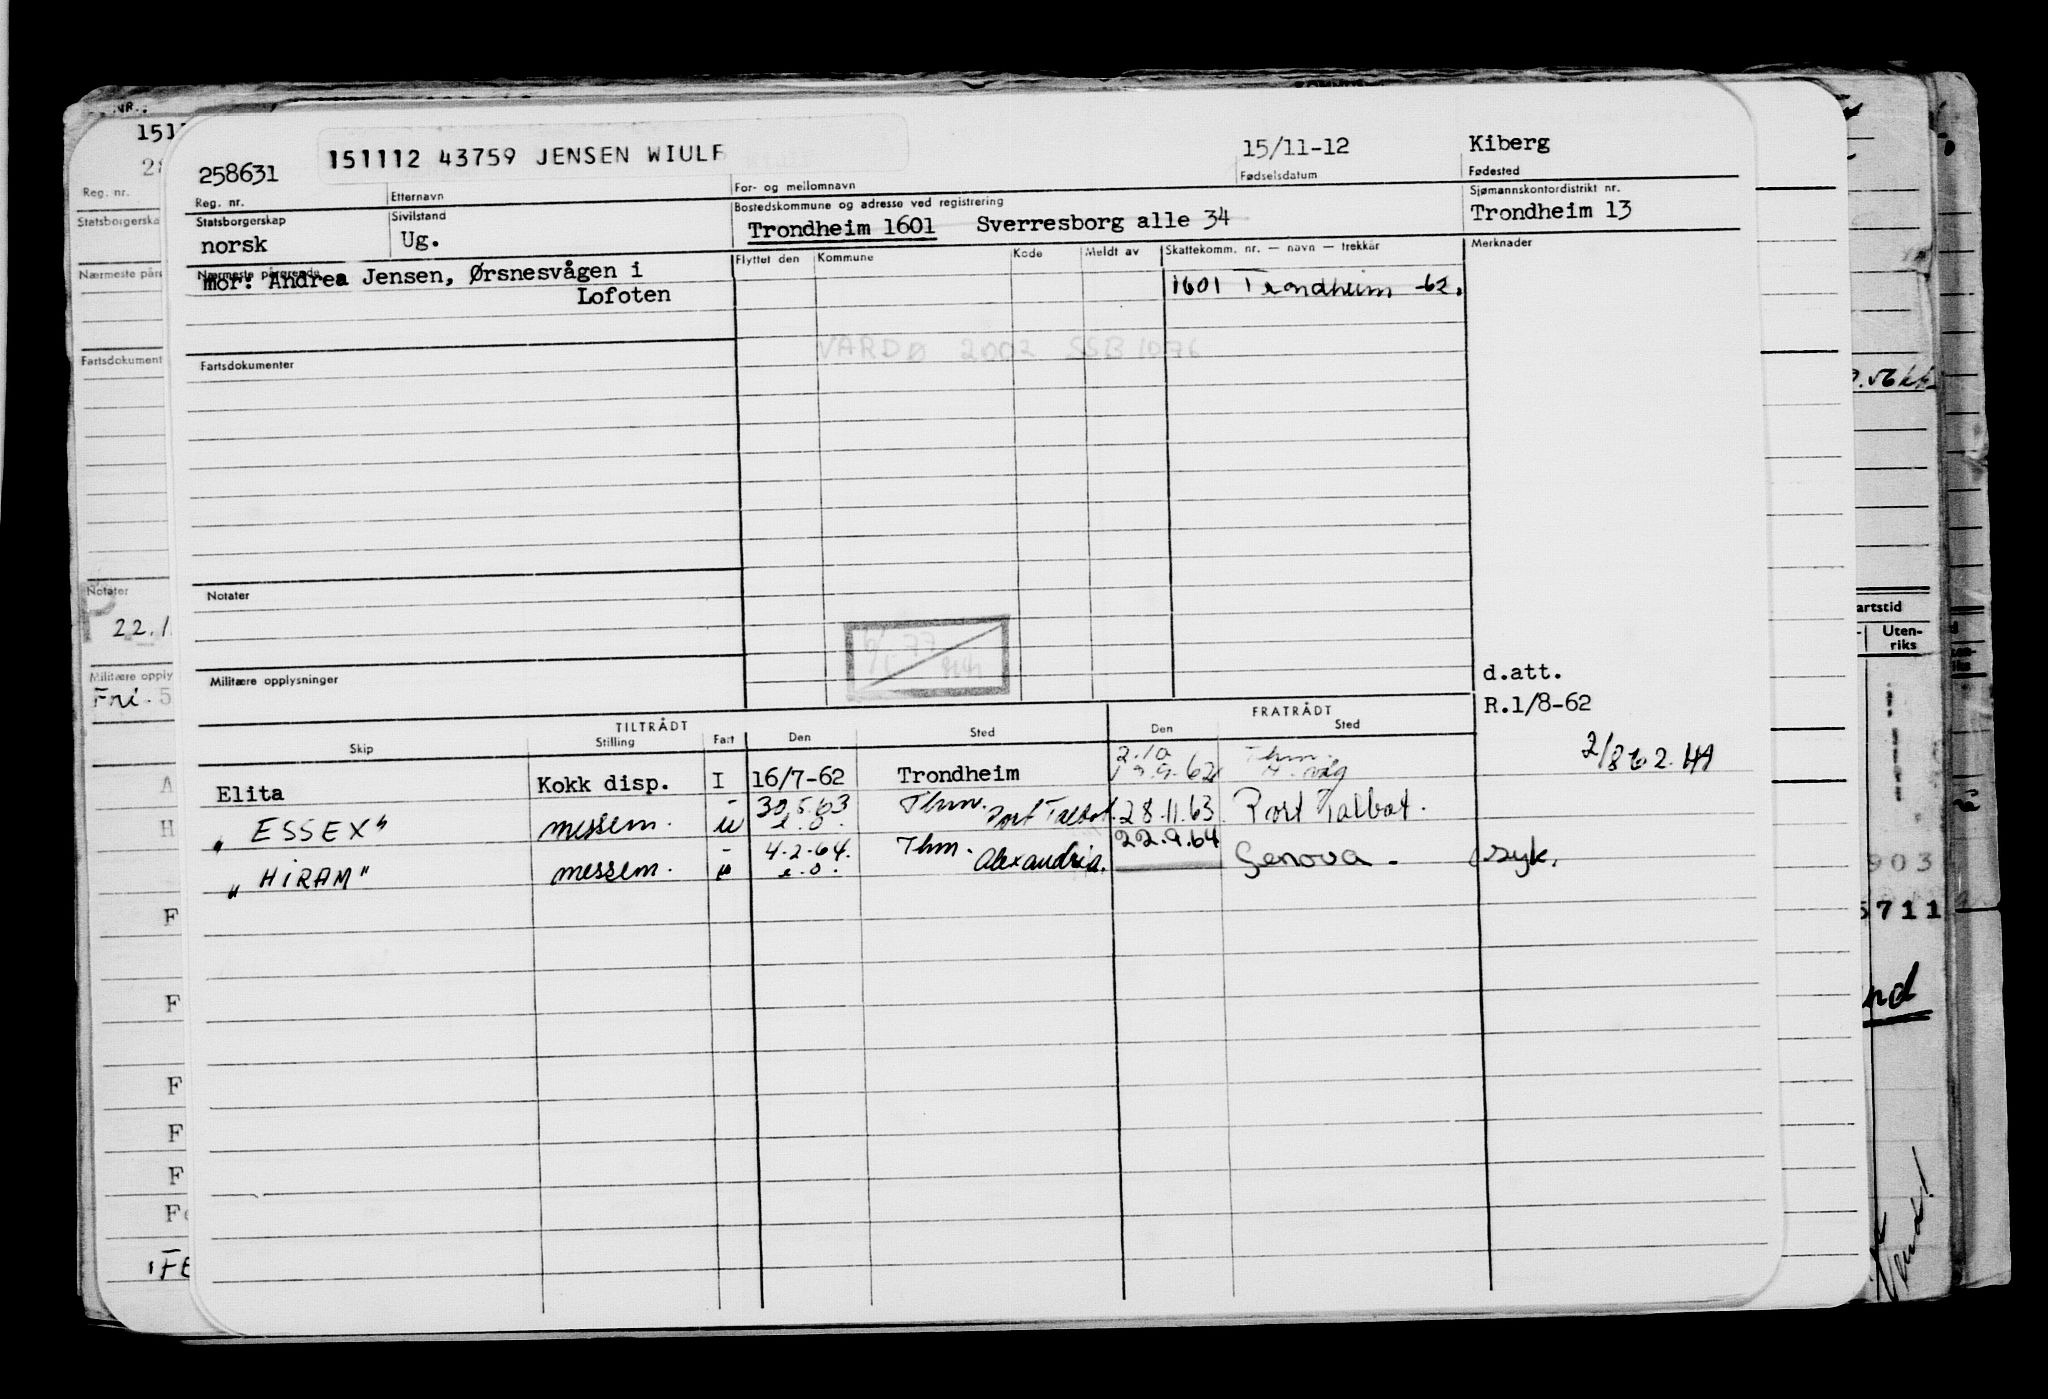 258631 151112 43759 JENSEN WIULF 15/11-12 Kiberg
Reg. nr. Etternavn For- og mellomnavn Fødselsdatum Fødested
Statsborgerskap Sivilstand Bostedskommune og adresse ved registrering Sjømannskontordistrikt nr.
norsk Ug. Trondheim 1601 Sverresborg alle 34 Trondheim 13
Nærmeste pårørende Flyttet den Kommune Kode Meldt av Skattekomm. nr. — navn — trekkår Merknader
mor: Andrea Jensen, Ørsnesvågen i 1601 Trondheim -62.
Lofoten
VARDØ 2002 SSB 1076
Fartsdokumenter
Notater
Militære opplysninger
d.att.
R.1/8-62
2/8 62. HA
TILTRÅDT FRATRÅDT
Skip Stilling Fart Den Sted Den Sted
2.10 Thm.
Elita Kokk disp. I 16/7-62 Trondheim
"ESSEX" messem. u 30.5.63 Thm. Port Talbot. 28.11.63 Port Talbot.
"HIRAM" messem. 4.2.64. Thm. Alexandria. 22.9.64 Genova. syk.
NR.:
Reg. nr.
Statsborgerska
Nærmeste pårø
Fartsdokument
Notater
22.1
Militære opply
Fri. 5
artstid
Uten-
riks
903
5711